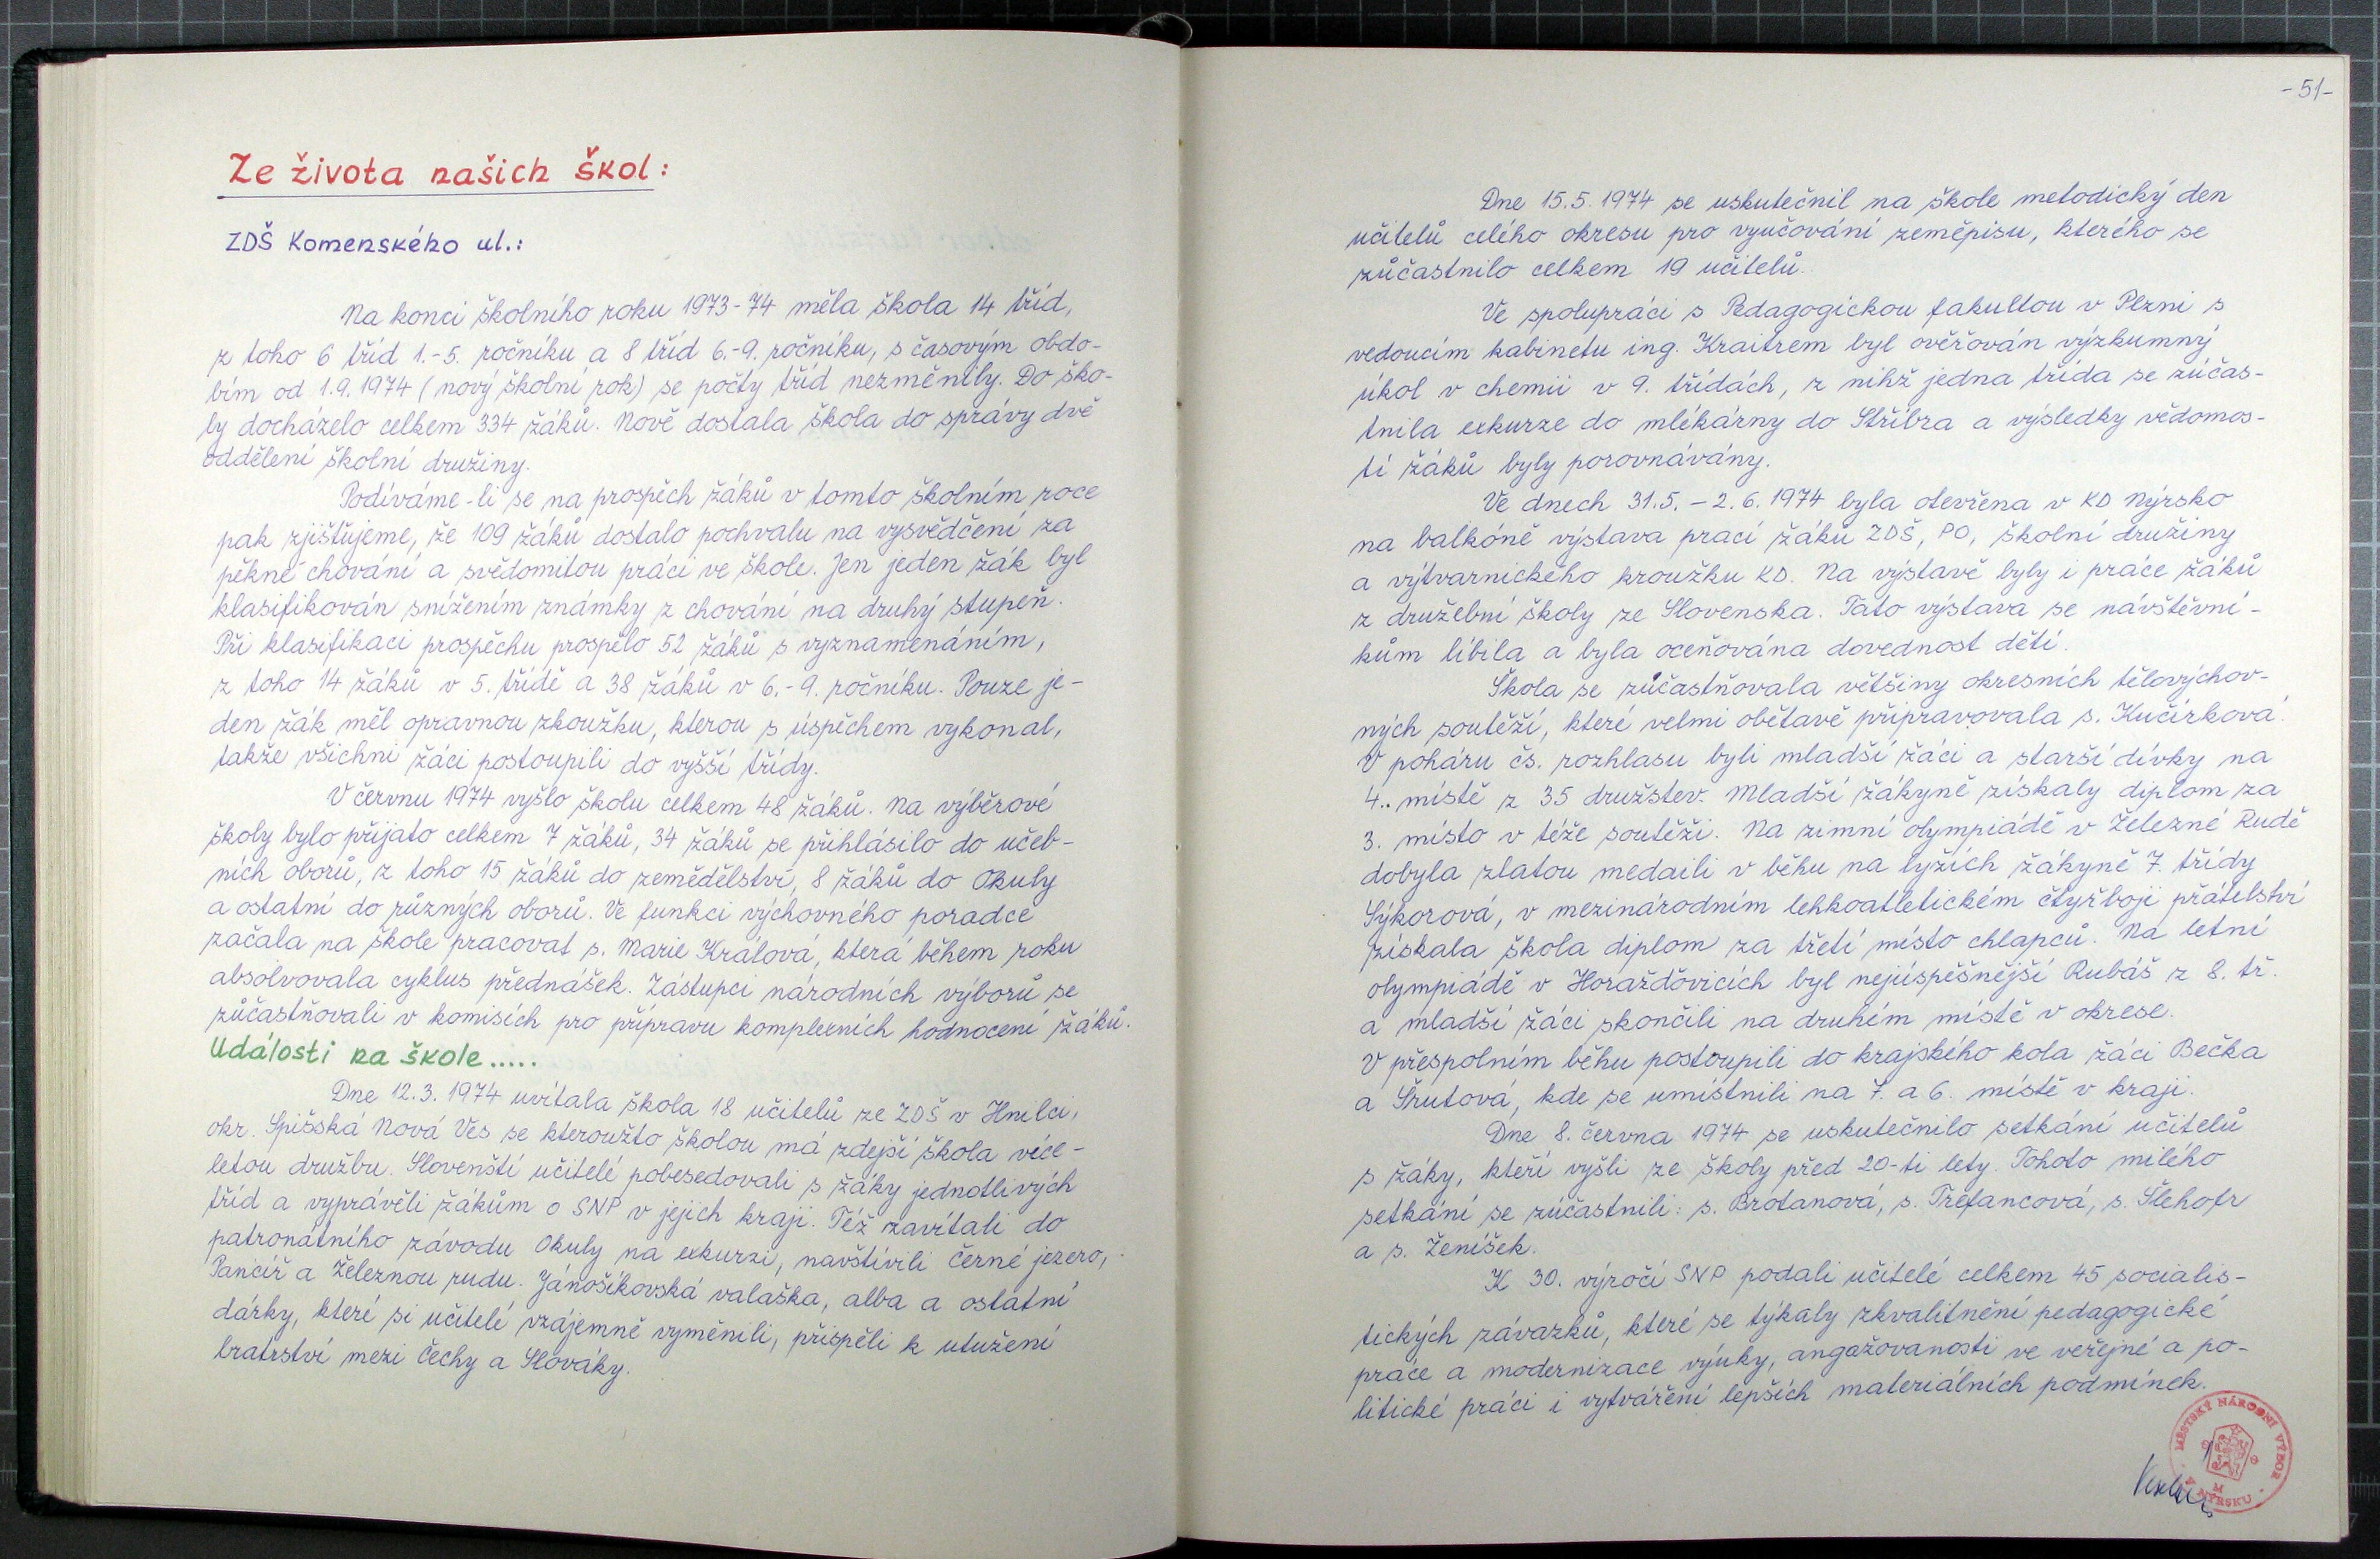 Ze života našich škol:
ZDŠ Komenského ul.:
Na konci školního roku 1973-74 měla škola 14 tříd,
z toho 6 tříd 1.-5. ročníku a 8 tříd 6.-9. ročníku, s časovým obdo-
bím od 1.9.1974 (nový školní rok) se počty tříd nezměnily. Do ško-
ly docházelo celkem 334 žáků. Nově dostala škola do správy dvě
oddělení školní družiny.
Podíváme-li se na prospěch žáků v tomto školním roce
pak zjišťujeme, že 109 žáků dostalo pochvalu na vysvědčení za
pěkné chování a svědomitou práci ve škole. Jen jeden žák byl
klasifikován snížením známky z chování na druhý stupeň.
Při klasifikaci prospěchu prospělo 52 žáků s vyznamenáním,
z toho 14 žáků v 5. třídě a 38 žáků v 6.-9. ročníku. Pouze je-
den žák měl opravnou zkoužku, kterou s úspěchem vykonal,
takže všichni žáci postoupili do vyšší třídy.
V červnu 1974 vyšlo školu celkem 48 žáků. Na výběrové
školy bylo přijato celkem 7 žáků, 34 žáků se přihlásilo do učeb-
ních oborů, z toho 15 žáků do zemědělství, 8 žáků do Okuly
a ostatní do různých oborů. Ve funkci výchovného poradce
začala na škole pracovat s. Marie Králová, která během roku
absolvovala cyklus přednášek. Zástupci národních výborů se
zůčastňovali v komisích pro přípravu komplexních hodnocení žáků.
Události na škole.....
Dne 12.3.1974 uvítala škola 18 učitelů ze ZDŠ v Hnilci,
okr. Spišská Nová Ves se kteroužto školou má zdejší škola více-
letou družbu. Slovenští učitelé pobesedovali s žáky jednotlivých
tříd a vyprávěli žákům o SNP v jejich kraji. Též zavítali do
patronátního závodu Okuly na exkurzi, navštívili Černé jezero,
Pancíř a Železnou rudu. Jánošíkovská valaška, alba a ostatní
dárky, které si učitelé vzájemně vyměnili, přispěli k utužení
bratrství mezi Čechy a Slováky.
-51-
Dne 15.5.1974 se uskutečnil na škole metodický den
učitelů celého okresu pro vyučování zeměpisu, kterého se
zůčastnilo celkem 19 učitelů.
Ve spolupráci s Pedagogickou fakultou v Plzni s
vedoucím kabinetu ing. Kraitrem byl ověřován výzkumný
úkol v chemii v 9. třídách, z nihž jedna třída se zúčas-
tnila exkurze do mlékárny do Stříbra a výsledky vědomos-
tí žáků byly porovnávány.
Ve dnech 31.5.-2.6.1974 byla otevřena v KD Nýrsko
na balkóně výstava prací žáků ZDŠ, PO, školní družiny
a výtvarnického kroužku KD. Na výstavě byly i práce žáků
z družební školy ze Slovenska. Tato výstava se návštěvní-
kům líbila a byla oceňována dovednost dětí.
Škola se zůčastňovala většiny okresních tělovýchov-
ných soutěží, které velmi obětavě připravovala s. Kučírková.
V poháru čs. rozhlasu byli mladší žáci a starší dívky na
4. místě z 35 družstev. Mladší žákyně získaly diplom za
3. místo v téže soutěži. Na zimní olympiádě v Železné Rudě
dobyla zlatou medaili v běhu na lyžích žákyně 7. třídy
Sýkorová, v mezinárodním lehkoatletickém čtyřboji přátelství
získala škola diplom za třetí místo chlapců. Na letní
olympiádě v Horažďovicích byl nejúspěšnější Rubáš z 8. tř.
a mladší žáci skončili na druhém místě v okrese.
V přespolním běhu postoupili do krajského kola žáci Bečka
a Šrutová, kde se umístnili na 7. a 6. místě v kraji.
Dne 8. června 1974 se uskutečnilo setkání učitelů
s žáky, kteří vyšli ze školy před 20-ti lety. Tohoto milého
setkání se zúčastnili: s. Brotanová, s. Trefancová, s. Šlehofr
a s. Ženíšek.
K 30. výročí SNP podali učitelé celkem 45 socialis-
tických závazků, které se týkaly zkvalitnění pedagogické
práce a modernizace výuky, angažovanosti ve veřejné a po-
litické práci i vytváření lepších materiálních podmínek.
MĚSTSKÝ NÁRODNÍ VÝBOR
V NÝRSKU
M